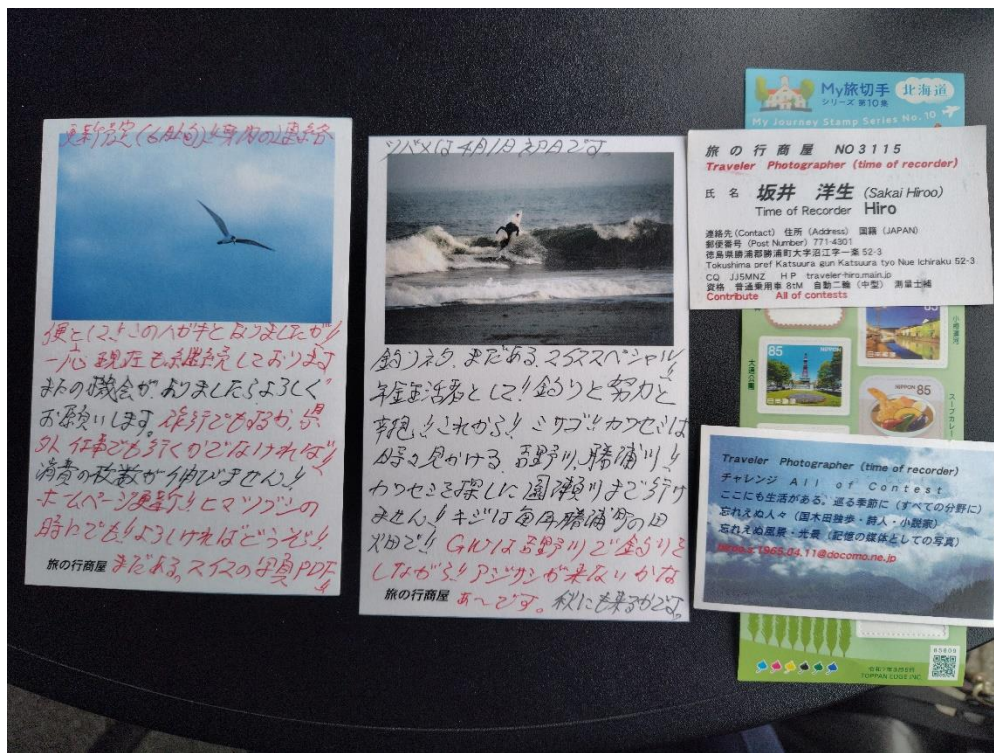 更新予定(6月上旬)!!案内の連絡
便としてはこのハガキとなりましたが!!
一応現在も継続しております
またの機会がありましたらよろしく
お願いします。旅行でもするか、県
外仕事でも行くかでなければ!!
消費の枚数が伸びません!!
ホームページ更新!!ヒマツブシの
時にでも!!よろしければどうぞ!!
まだある。スイスの写真PDF!!
旅の行商屋
ツバメは4月1日初日です。
釣りネタ、まだある、スイススペシャル!!
年金生活者として!!釣りと努力と
辛抱!!これから!!ミサゴ!!カワセミは
時々見かける、吉野川、勝浦川!!
カワセミを探しに園瀬川まで行け
ません!!キジは毎年勝浦町の田
畑で!!GWは吉野川で釣りを
しながら!!アジサシが来ないかな
旅の行商屋 あ〜です。秋にも来るかです。
My旅切手 北海道
シリーズ 第10集
My Journey Stamp Series No. 10
旅の行商屋 NO3115
Traveler Photographer (time of recorder)
氏名 坂井 洋生 (Sakai Hiroo)
Time of Recorder Hiro
連絡先(Contact) 住所(Address) 国籍(JAPAN)
郵便番号(Post Number) 771-4301
徳島県勝浦郡勝浦町大字沼江字一楽 52-3
Tokushima pref Katsuura gun Katsuura tyo Nue Ichiraku 52-3
CQ JJ5MNZ HP traveler-hiro.main.jp
資格 普通乗用車 8tM 自動二輪(中型) 測量士補
Contribute All of contests
小樽運河
日本郵便
大通公園
85 NIPPON
日本郵便
NIPPON 85
スープカレー
Traveler Photographer (time of recorder)
チャレンジ All of Contest
ここにも生活がある。巡る季節に(すべての分野に)
忘れえぬ人々(国木田独歩・詩人・小説家)
忘れえぬ風景・光景(記憶の媒体としての写真)
1965.04.11@docomo.ne.jp
TOPPAN EDGE INC.